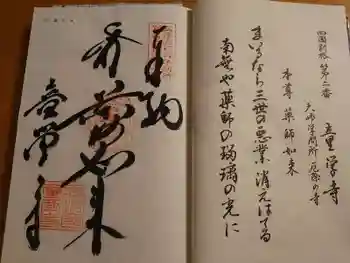 四国別格 第二番
童学寺
大師学問所 厄除の寺
本尊 薬師如来
まいるなら三世の悪業消えはてる
南無や薬師の瑠璃の光に
奉納
薬師如来
童学寺